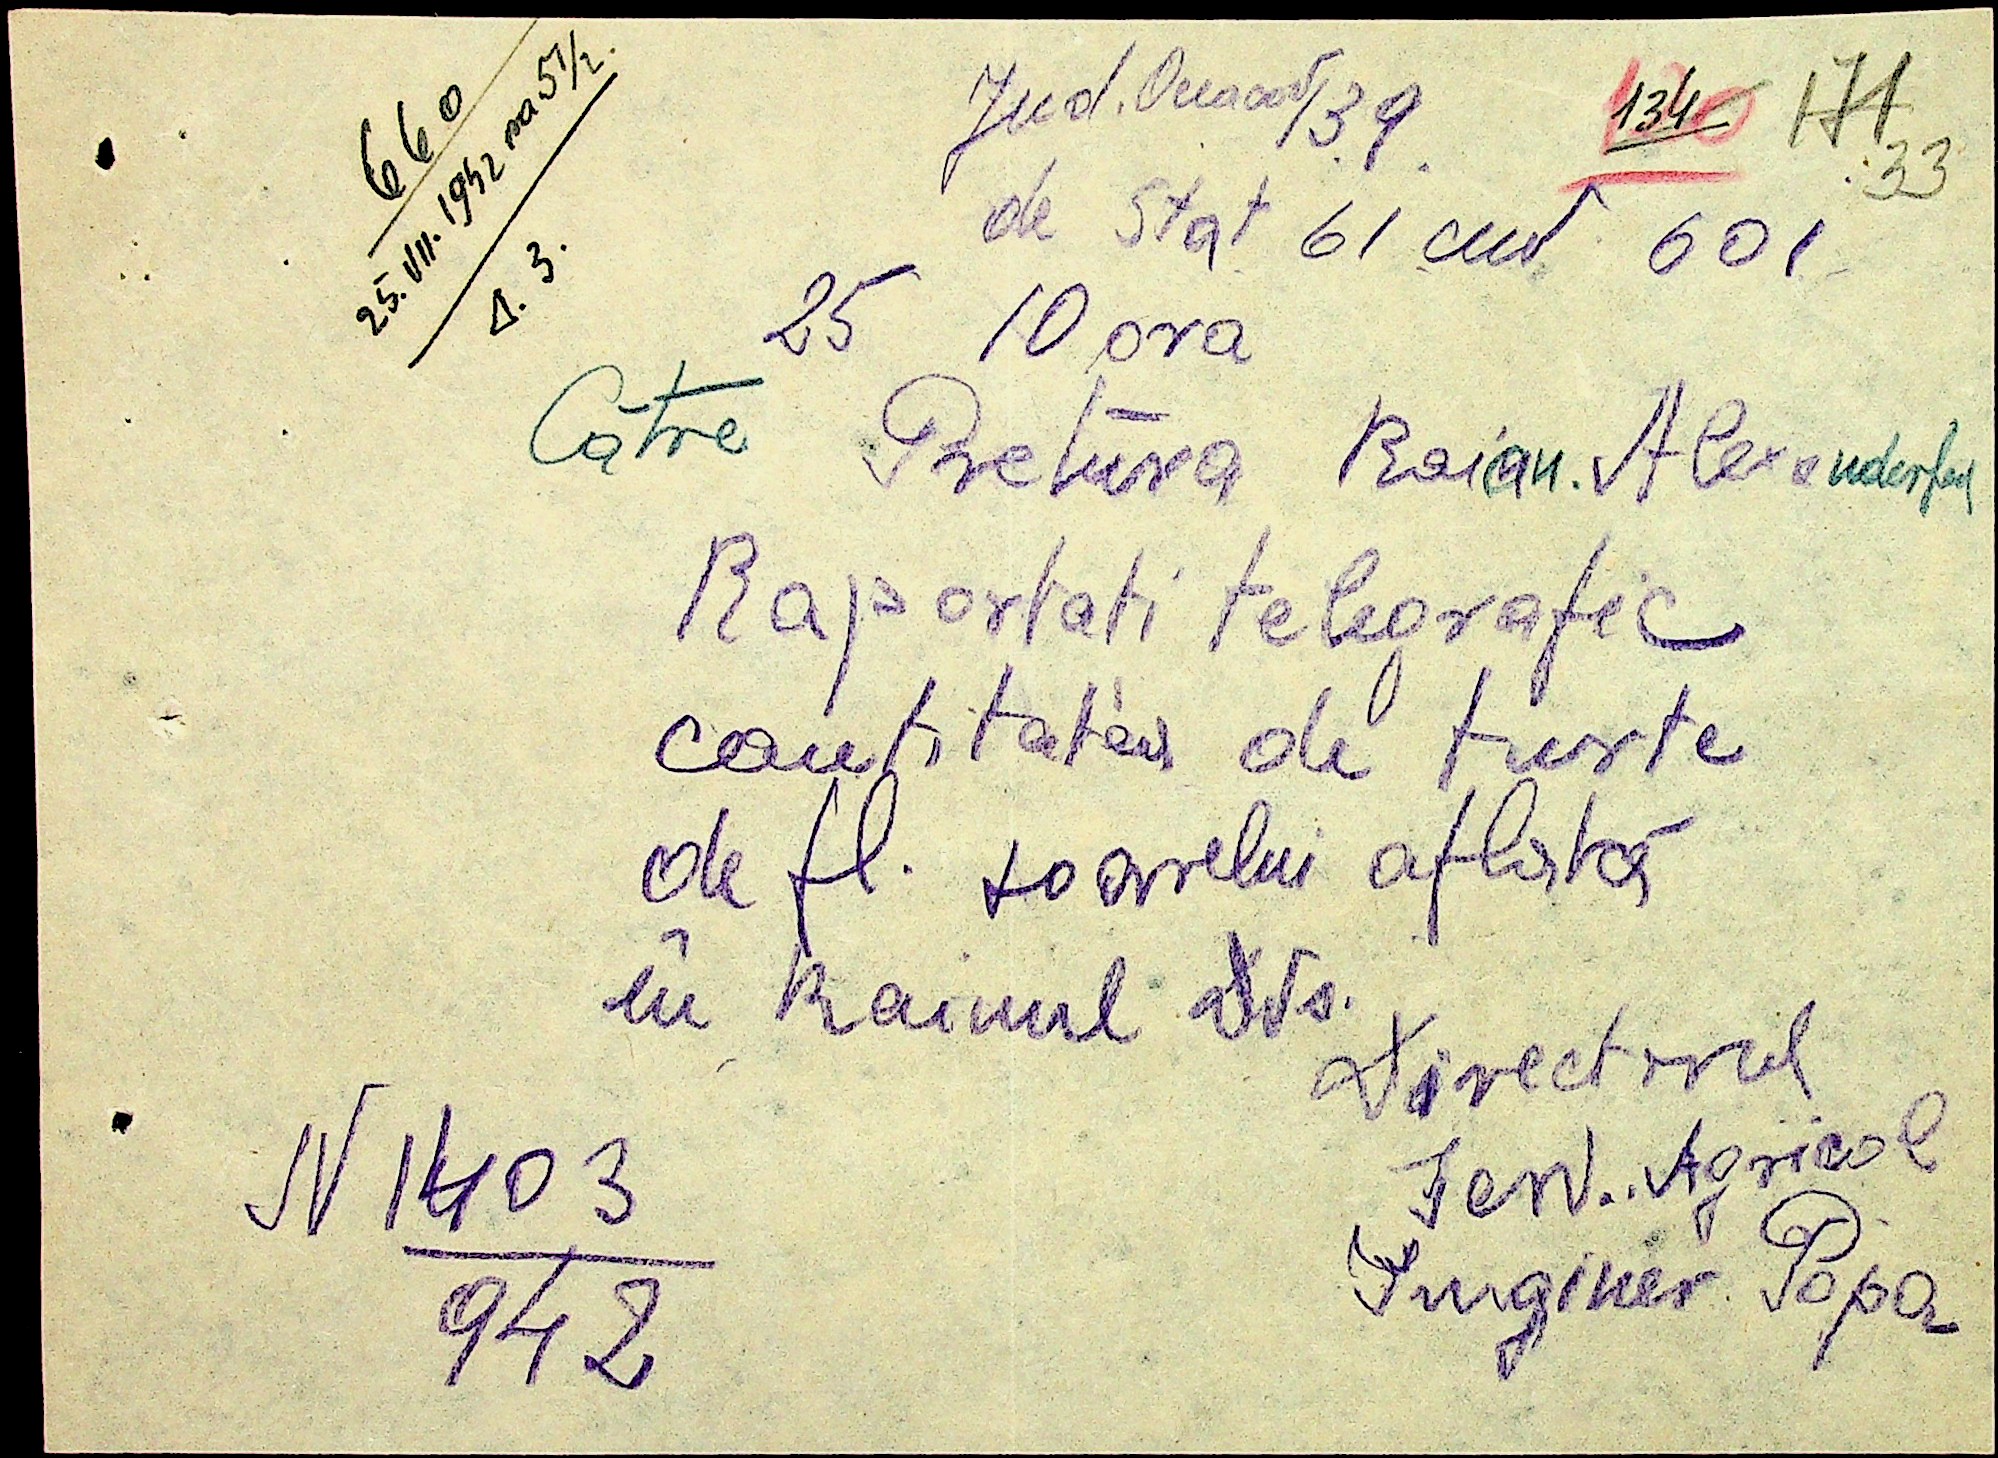 660
25.VII.1942 na 5 1/2.
Δ. 3.
134
171
33
Jud. 139
de Stat 61 cuv 601
25 10 ora
Către Pretura Raian. Alexanderfeld
Raportati telegrafic
cantitatea de turte
de fl. soarelui aflată
în Raionul Dvs.
Directorul
Serv. Agricol
Inginer Popa
N 1403
942